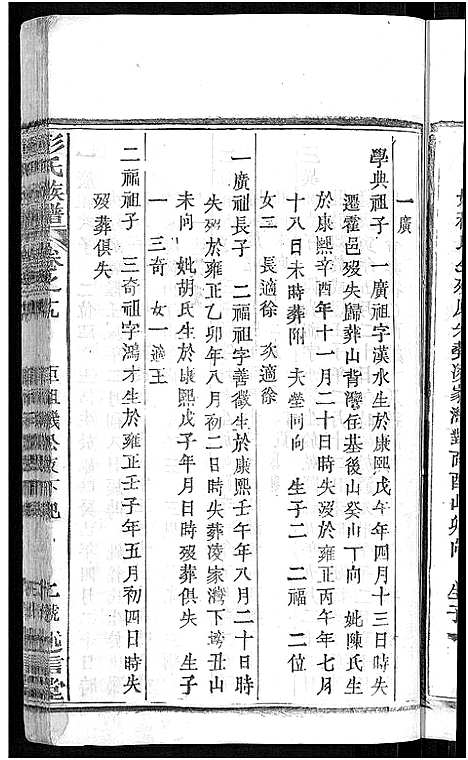 一廣
學典祖子　一廣祖字漢水生於康熙戊午年四月十三日時失
遷霍邑歿失歸葬山背灣住基後山癸山丁向　妣陳氏生
於康熙辛酉年十一月二十日時失歿於雍正丙午年七月
十八日未時葬附　夫塋同向　生子二　二福　二位
女二　長適徐　次適徐
一廣祖長子　二福祖字善徵生於康熙壬午年八月二十日時
失歿於雍正乙卯年八月初二日時失葬凌家灣下塆丑山
未向　妣胡氏生於康熙戊子年月日時歿葬俱失　生子
一　三奇　女一適王
二福祖子　三奇祖字鴻才生於雍正壬子年五月初四日時失
歿葬俱失
彭氏族譜　卷之九